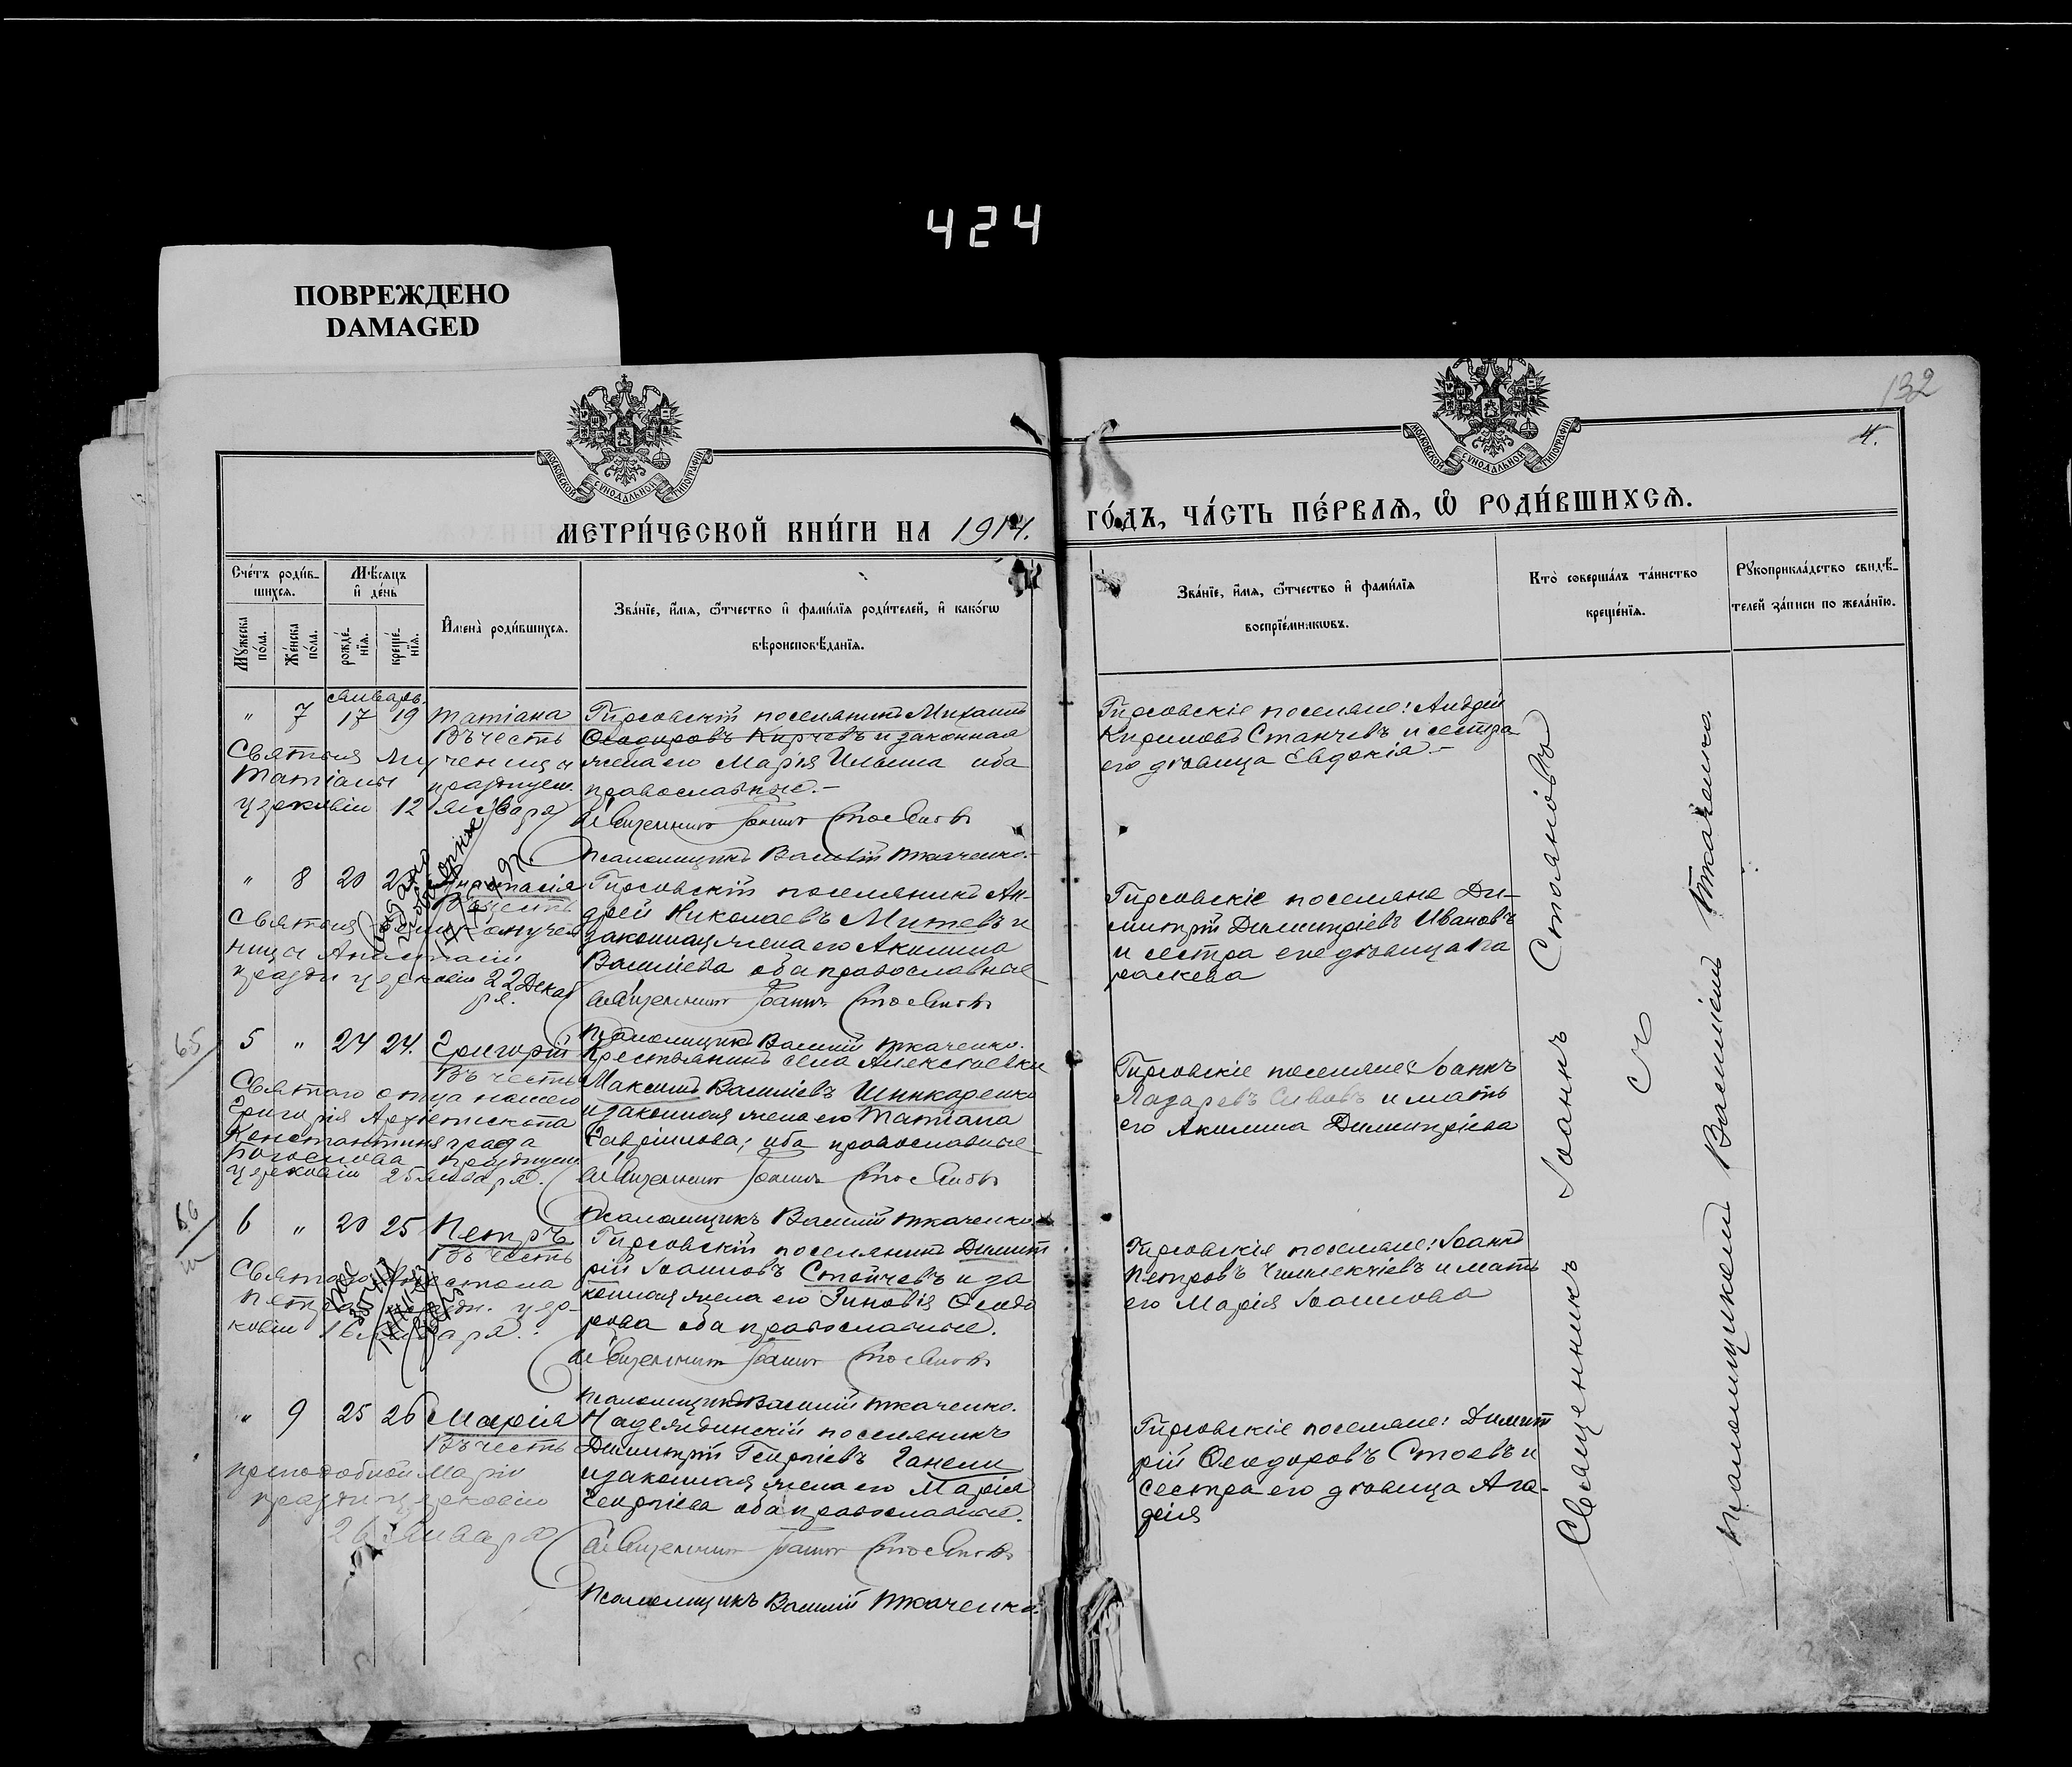 424
ПОВРЕЖДЕНО
DAMAGED
132
4.
МОСКОВСКОЙ СѴНОДАЛЬНОЙ ТИПОГРАФІИ
МОСКОВСКОЙ СѴНОДАЛЬНОЙ ТИПОГРАФІИ
МЕТРИ́ЧЕСКОЙ КНИ́ГИ НА 1914.
ГО́ДЪ, ЧА́СТЬ ПЕ́РВАѦ, Ѡ҆ РОДИ́ВШИХСѦ.
Сче́тъ роди́в-
шихсѧ.
Мꙋ́жеска
по́ла.
Же́нска
по́ла.
Мѣ́сѧцъ
и҆ де́нь
рожде́-
нїѧ.
креще́-
нїѧ.
И҆мена̀ роди́вшихсѧ.
Зва́нїе, и҆́мѧ, ѻ҆́тчество и҆ фамі́лїѧ роди́телей, и҆ како́гѡ
вѣроисповѣ́данїѧ.
Зва́нїе, и҆́мѧ, ѻ҆́тчество и҆ фамі́лїѧ
воспрїе́мникѡвъ.
Кто̀ соверша́лъ та́инство
креще́нїѧ.
Рꙋкоприкла́дство свидѣ́-
телей за́писи по жела́нїю.
Январь.
" 7 17 19 Татіана
Въ честь
Святыя мученицы
Татіаны празднуем.
церковію 12 Января
Гирсовскій поселянинъ Михаилъ
Ѳеодоровъ Кирчевъ и законная
жена его Марія Ильина оба
православные.-
Священникъ Іоаннъ Стояновъ
Псаломщикъ Василій Ткаченко.
Гирсовскіе поселяне: Андрей
Кириловъ Станчевъ и сестра
его дѣвица Евдокія.-
" 8 20 Анастасія
Въ честь
Святыя
ницы Анастасіи
праздн церковію 22 Декаб
ря.
Гирсовскій поселянинъ Ан-
дрей Николаевъ Митевъ и
законная жена его Акилина
Василіева оба православные
Священникъ Іоаннъ Стояновъ
Псаломщикъ Василій Ткаченко.
Гирсовскіе поселяне Ди-
митрій Димитріевъ Ивановъ
и сестра его дѣвица Па
раскева
65
5 " 24 24. Григорій
Въ честь
Святаго отца нашего
Григорія Архіепископа
Константинаграда
Богослова празднуем
церковію 25 Января.
Крестьянинъ села Алексѣевки
Максимъ Василіевъ Шинкаренко
и законная жена его Татіана
Гавріилова; оба православные
Священникъ Іоаннъ Стояновъ
Псаломщикъ Василій Ткаченко
Гирсовскіе поселяне: Іоаннъ
Лазаревъ Сивовъ и мать
его Акилина Димитріева
66
6 " 20 25 Петръ
Въ честь
Святаго Апостола
Петра праздн. цер-
ковію 16 Января.
Гирсовскій поселянинъ Димит
рій Іоанновъ Стойчевъ и за
конная жена его Зиновія Ѳеодо
рова оба православные.
Священникъ Іоаннъ Стояновъ
Псаломщикъ Василій Ткаченко.
Гирсовскіе поселяне: Іоаннъ
Петровъ Чимлекчіевъ и мать
его Марія Іоаннова
" 9 25 26 Марія
Въ честь
преподобной Маріи
праздн церковію
26 Января
Надеждинскій поселянинъ
Димитрій Георгіевъ Ганели
и законная жена его Марія
Георгіева оба православные.
Священникъ Іоаннъ Стояновъ
Псаломщикъ Василій Ткаченко.
Гирсовскіе поселяне: Димит
рій Ѳеодоровъ Стоевъ и
сестра его дѣвица Ага-
ѳія
Священникъ Іоаннъ Стояновъ
съ
Псаломщикомъ Василіемъ Ткаченко